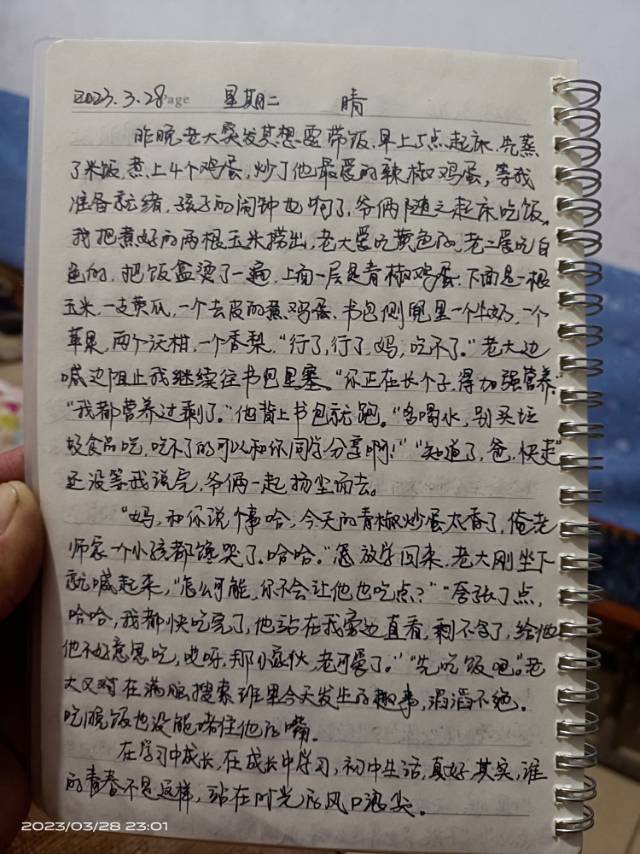 2023.3.28 Page 星期二 晴
昨晚老大突发其想要带饭,早上5点起床,先蒸
了米饭,煮上4个鸡蛋,炒了他最爱的辣椒鸡蛋,等我
准备就绪,孩子的闹钟也响了,爷俩随之起床吃饭。
我把煮好的两根玉米捞出,老大爱吃黄色的,老二爱吃白
色的,把饭盒烫了一遍,上面一层是青椒鸡蛋,下面是一根
玉米,一支黄瓜,一个去皮的煮鸡蛋,书包侧兜里一个牛奶,一个
苹果,两个沃柑,一个香梨,“行了,行了,妈,吃不了。”老大边
喊边阻止我继续往书包里塞。“你正在长个子,得加强营养。”
“我都营养过剩了。”他背上书包就跑。“多喝水,别买垃
圾食品吃,吃不了的可以和你同学分享啊!”“知道了,爸,快走”
还没等我说完,爷俩一起扬尘而去。
“妈,和你说个事哈,今天的青椒炒蛋太香了,俺老
师家一个小孩都馋哭了,哈哈。”放学回来,老大刚坐下
就喊起来,“怎么可能,你不会让他也吃点?”“夸张了点,
哈哈,我都快吃完了,他站在我旁边直看,剩不多了,给他
他不好意思吃,哎呀,那小家伙,老可爱了。”“先吃饭吧。”老
大又在满脑搜索班里今天发生的趣事,滔滔不绝。
吃晚饭也没能堵住他的嘴。
在学习中成长,在成长中学习,初中生活,真好,其实,谁
的青春不是这样,站在时光的风口浪尖。
2023/03/28 23:01